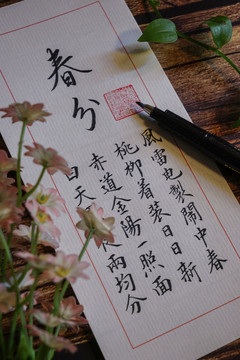 春分
風雷也製鬧中春
桃柳着装日日新
赤道金陽一照面
白天 兩均分